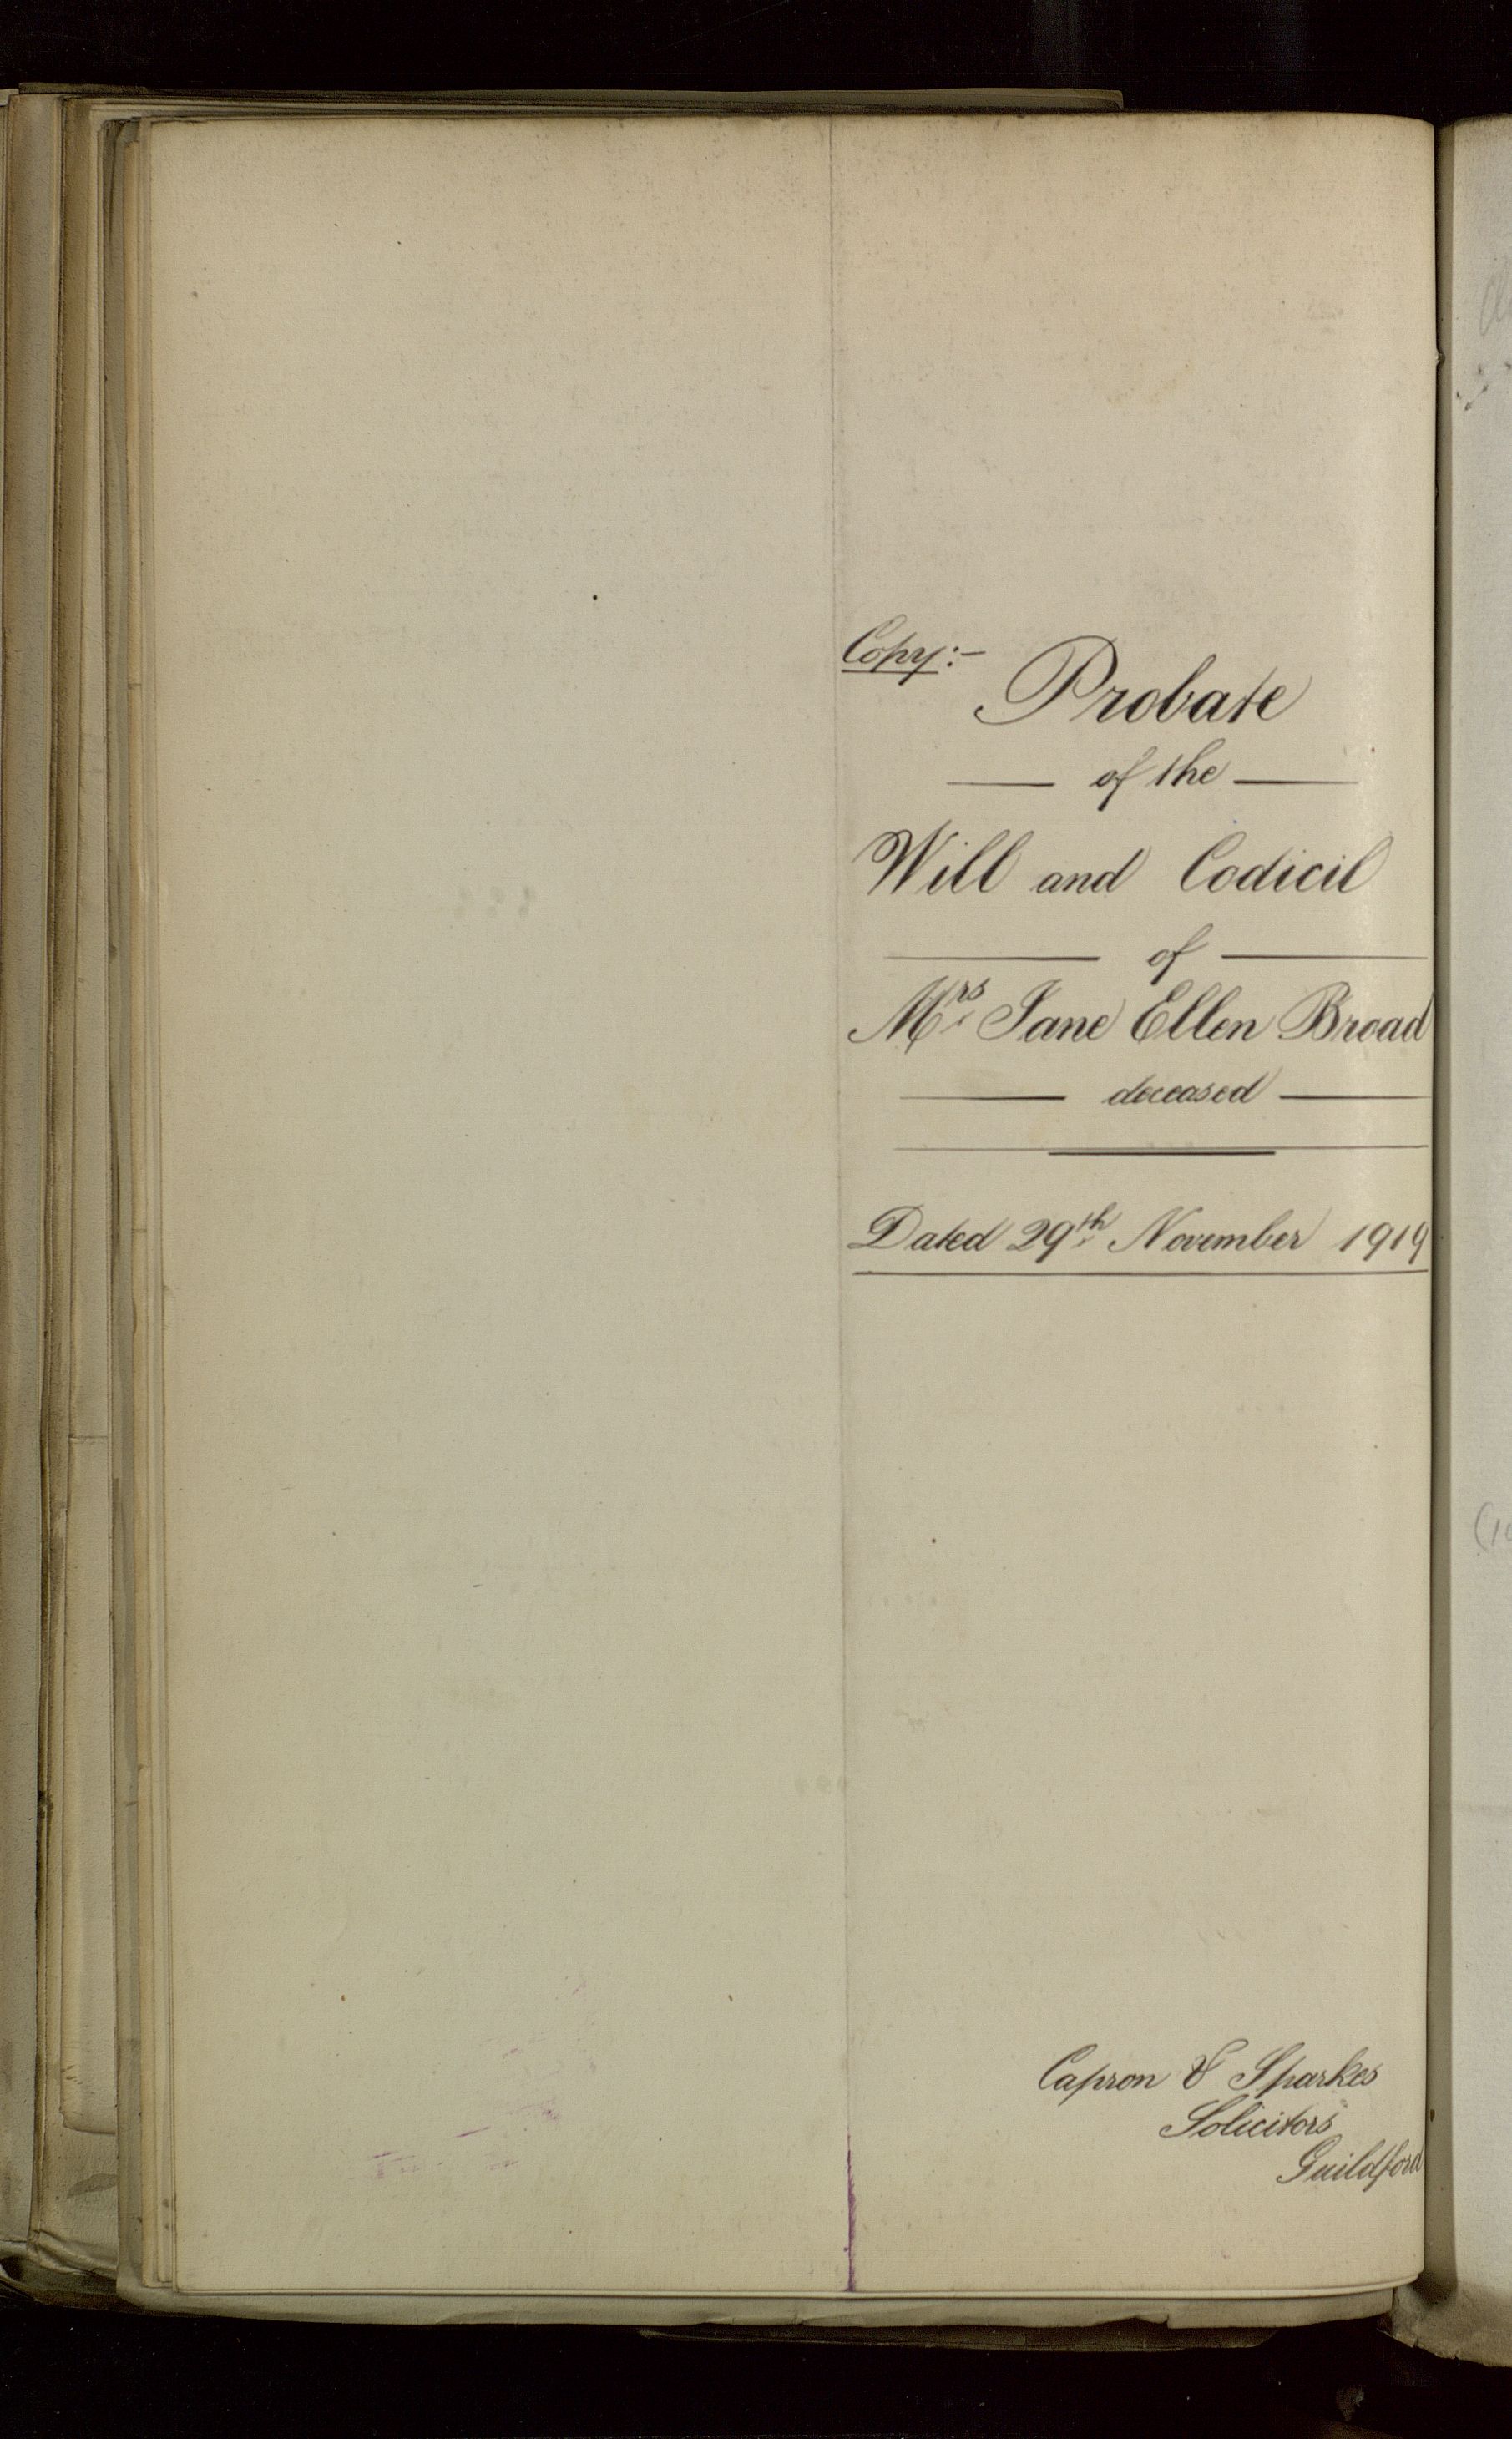 Copy:-
Probate
of the
Will and Codicil
of
Mrs Jane Ellen Broad
deceased
Dated 29th November 1919
Capron & Sparkes
Solicitors
Guildford